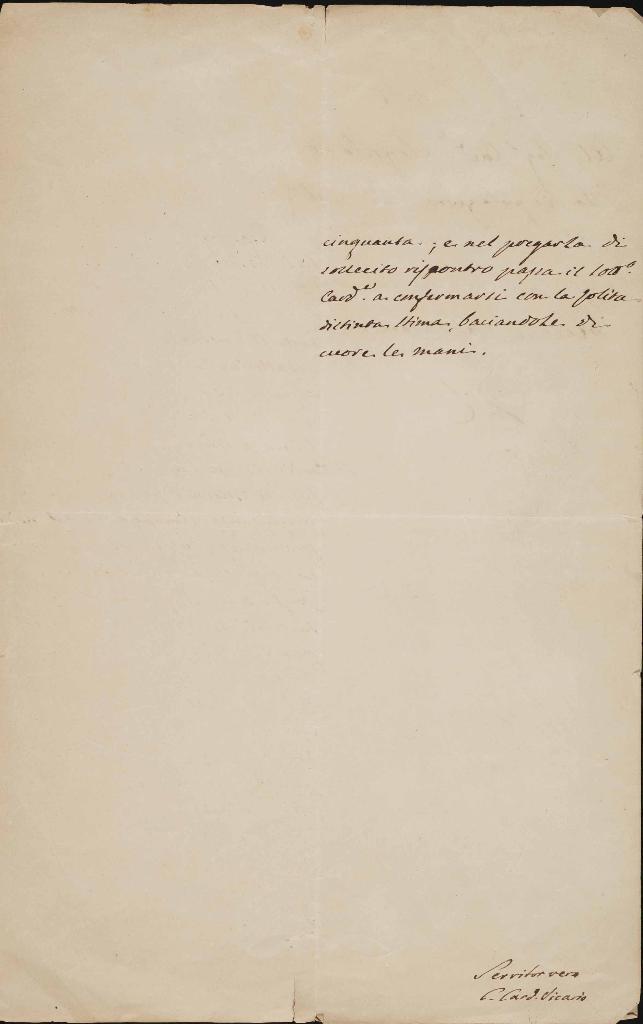 cinquanta; e nel pregarla di
sollecito rispontro passa il sott.o
Card.e a confermarsi con la solita
distinta stima, baciandole di
cuore le mani.
Servitor vero
C. Card. Vicario